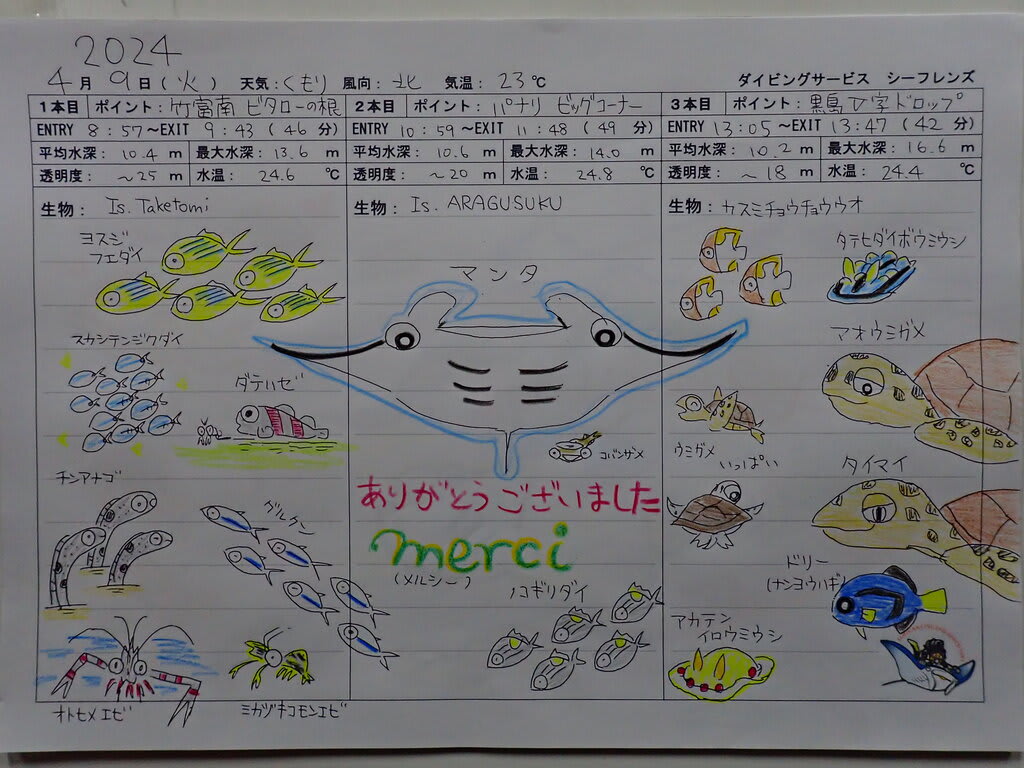 2024
4月 9日(火) 天気:くもり 風向:北 気温:23℃ ダイビングサービス シーフレンズ
1本目 ポイント:竹富南 ビタローの根
ENTRY 8:57～EXIT 9:43(46分)
平均水深:10.4m 最大水深:13.6m
透明度:～25m 水温:24.6℃
生物: Is. Taketomi
ヨスジ
フエダイ
スカシテンジクダイ
ダテハゼ
チンアナゴ
グルクン
オトヒメエビ
ミカヅキコモンエビ
2本目 ポイント:パナリ ビッグコーナー
ENTRY 10:59～EXIT 11:48(49分)
平均水深:10.6m 最大水深:14.0m
透明度:～20m 水温:24.8℃
生物: Is. ARAGUSUKU
マンタ
コバンザメ
ありがとうございました
merci
(メルシー)
ノコギリダイ
3本目 ポイント:黒島V字ドロップ
ENTRY 13:05～EXIT 13:47(42分)
平均水深:10.2m 最大水深:16.6m
透明度:～18m 水温:24.4℃
生物:カスミチョウチョウウオ
タテヒダイボウミウシ
アオウミガメ
ウミガメ
いっぱい
タイマイ
ドリー
(ナンヨウハギ)
アカテン
イロウミウシ